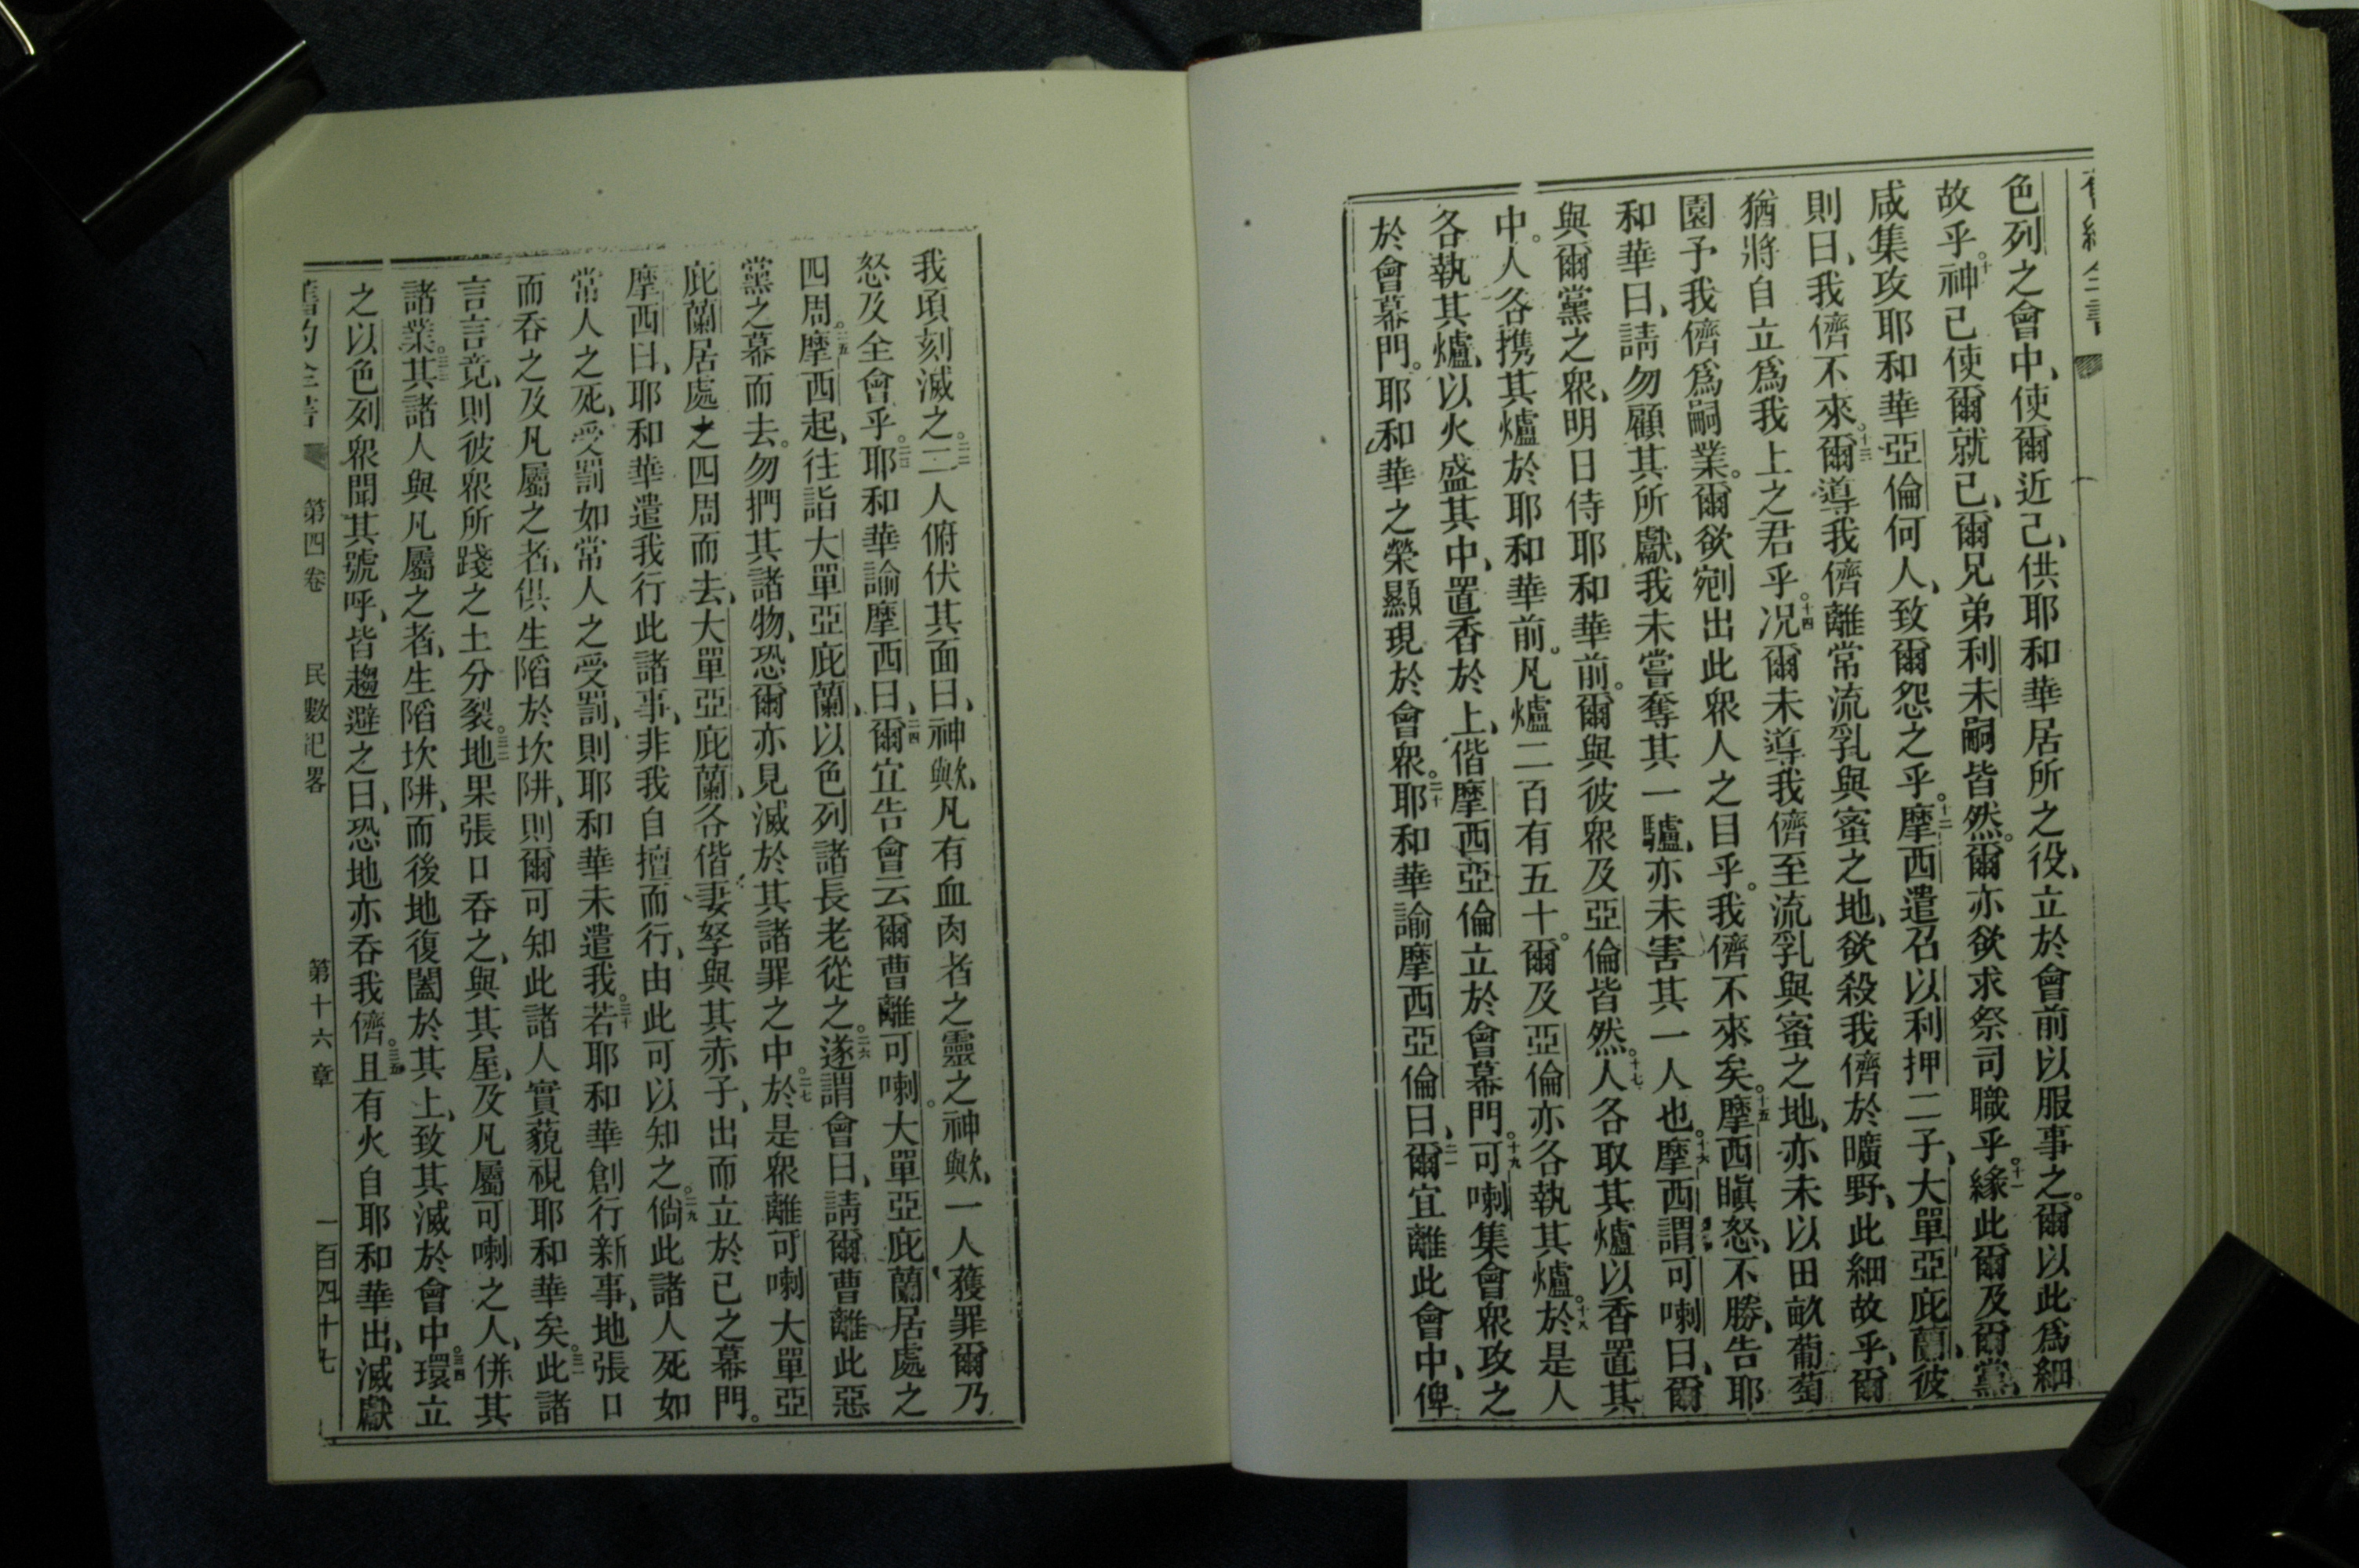 色列之會中、使爾近己、供耶和華居所之役、立於會前以服事之。爾以此爲細
故乎。十神已使爾就己、爾兄弟利未嗣皆然。爾亦欲求祭司職乎。十一緣此爾及爾黨、
咸集攻耶和華亞倫何人、致爾怨之乎。十二摩西遣召以利押二子、大單亞庇蘭、彼
則曰、我儕不來。十三爾導我儕離常流乳與蜜之地、欲殺我儕於曠野、此細故乎、爾
猶將自立爲我上之君乎。十四况爾未導我儕至流乳與蜜之地、亦未以田畝葡萄
園予我儕爲嗣業。爾欲剜出此衆人之目乎。我儕不來矣。十五摩西瞋怒、不勝、告耶
和華曰、請勿顧其所獻、我未嘗奪其一驢、亦未害其一人也。十六摩西謂可喇曰、爾
與爾黨之衆、明日侍耶和華前。爾與彼衆及亞倫皆然。十七人各取其爐以香置其
中。人各携其爐於耶和華前。凡爐二百有五十。爾及亞倫亦各執其爐。十八於是人
各執其爐、以火盛其中、置香於上、偕摩西亞倫立於會幕門。十九可喇集會衆攻之
於會幕門。耶和華之榮顯現於會衆。二十耶和華諭摩西亞倫曰、二一爾宜離此會中、俾
我頃刻滅之。二二二人俯伏其面曰、神歟、凡有血肉者之靈之神歟、一人獲罪爾乃
怒及全會乎。二三耶和華諭摩西曰、二四爾宜告會云爾曹離可喇。大單亞庇蘭居處之
四周。二五摩西起、往詣大單亞庇蘭、以色列諸長老從之。二六遂謂會曰、請爾曹離此惡
黨之幕而去。勿捫其諸物、恐爾亦見滅於其諸罪之中。二七於是衆離可喇大單亞
庇蘭居處之四周而去、大單亞庇蘭、各偕妻孥與其赤子、出而立於己之幕門。
摩西曰、耶和華遣我行此諸事、非我自擅而行、由此可以知之。二九倘此諸人死如
常人之死、受罰如常人之受罰、則耶和華未遣我。三十若耶和華創行新事、地張口
而吞之及凡屬之者、俱生陷於坎阱、則爾可知此諸人實藐視耶和華矣。三一此諸
言言竟、則彼衆所踐之土分裂。三二地果張口吞之、與其屋、及凡屬可喇之人、併其
諸業。三三其諸人與凡屬之者、生陷坎阱、而後地復闔於其上、致其滅於會中。三四環立
之以色列衆聞其號呼、皆趨避之曰、恐地亦吞我儕。三五且有火自耶和華出、滅獻
第四卷 民數記畧 第十六章 一百四十七